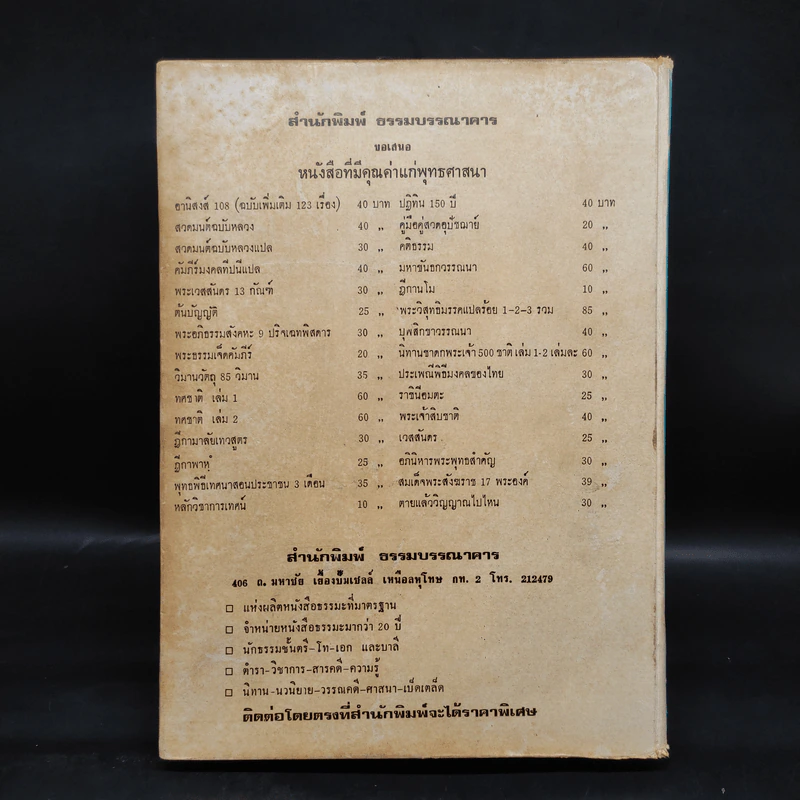 สำนักพิมพ์ ธรรมบรรณาคาร
ขอเสนอ
หนังสือที่มีคุณค่าแก่พุทธศาสนา
อานิสงส์ 108 (ฉบับเพิ่มเติม 123 เรื่อง) 40 บาท
สวดมนต์ฉบับหลวง 40 „
สวดมนต์ฉบับหลวงแปล 30 „
คัมภีร์มงคลทีปนีแปล 40 „
พระเวสสันดร 13 กัณฑ์ 30 „
ต้นบัญญัติ 25 „
พระอภิธรรมสังคหะ 9 ปริจเฉทพิสดาร 30 „
พระธรรมเจ็ดคัมภีร์ 20 „
วิมานวัตถุ 85 วิมาน 35 „
ทศชาติ เล่ม 1 60 „
ทศชาติ เล่ม 2 60 „
ฎีกามาลัยเทวสูตร 30 „
ฎีกาพาหุํ 25 „
พุทธพิธีเทศนาสอนประชาชน 3 เดือน 35 „
หลักวิชาการเทศน์ 10 „
ปฏิทิน 150 ปี 40 บาท
คู่มือคู่สวดอุปัชฌาย์ 20 „
คติธรรม 40 „
มหาขันธกวรรณนา 60 „
ฎีกานโม 10 „
พระวิสุทธิมรรคแปลร้อย 1-2-3 รวม 85 „
บุพสิกขาวรรณนา 40 „
นิทานชาดกพระเจ้า 500 ชาติ เล่ม 1-2 เล่มละ 60 „
ประเพณีพิธีมงคลของไทย 30 „
ราชินีอมตะ 25 „
พระเจ้าสิบชาติ 40 „
เวสสันดร 25 „
อภินิหารพระพุทธสำคัญ 30 „
สมเด็จพระสังฆราช 17 พระองค์ 39 „
ตายแล้ววิญญาณไปไหน 30 „
สำนักพิมพ์ ธรรมบรรณาคาร
406 ถ. มหาชัย เยื้องปั๊มเชลล์ เหนือลหุโทษ กท. 2 โทร. 212479
□ แห่งผลิตหนังสือธรรมะที่มาตรฐาน
□ จำหน่ายหนังสือธรรมะมากว่า 20 ปี
□ นักธรรมชั้นตรี-โท-เอก และบาลี
□ ตำรา-วิชาการ-สารคดี-ความรู้
□ นิทาน-นวนิยาย-วรรณคดี-ศาสนา-เบ็ดเตล็ด
ติดต่อโดยตรงที่สำนักพิมพ์จะได้ราคาพิเศษ